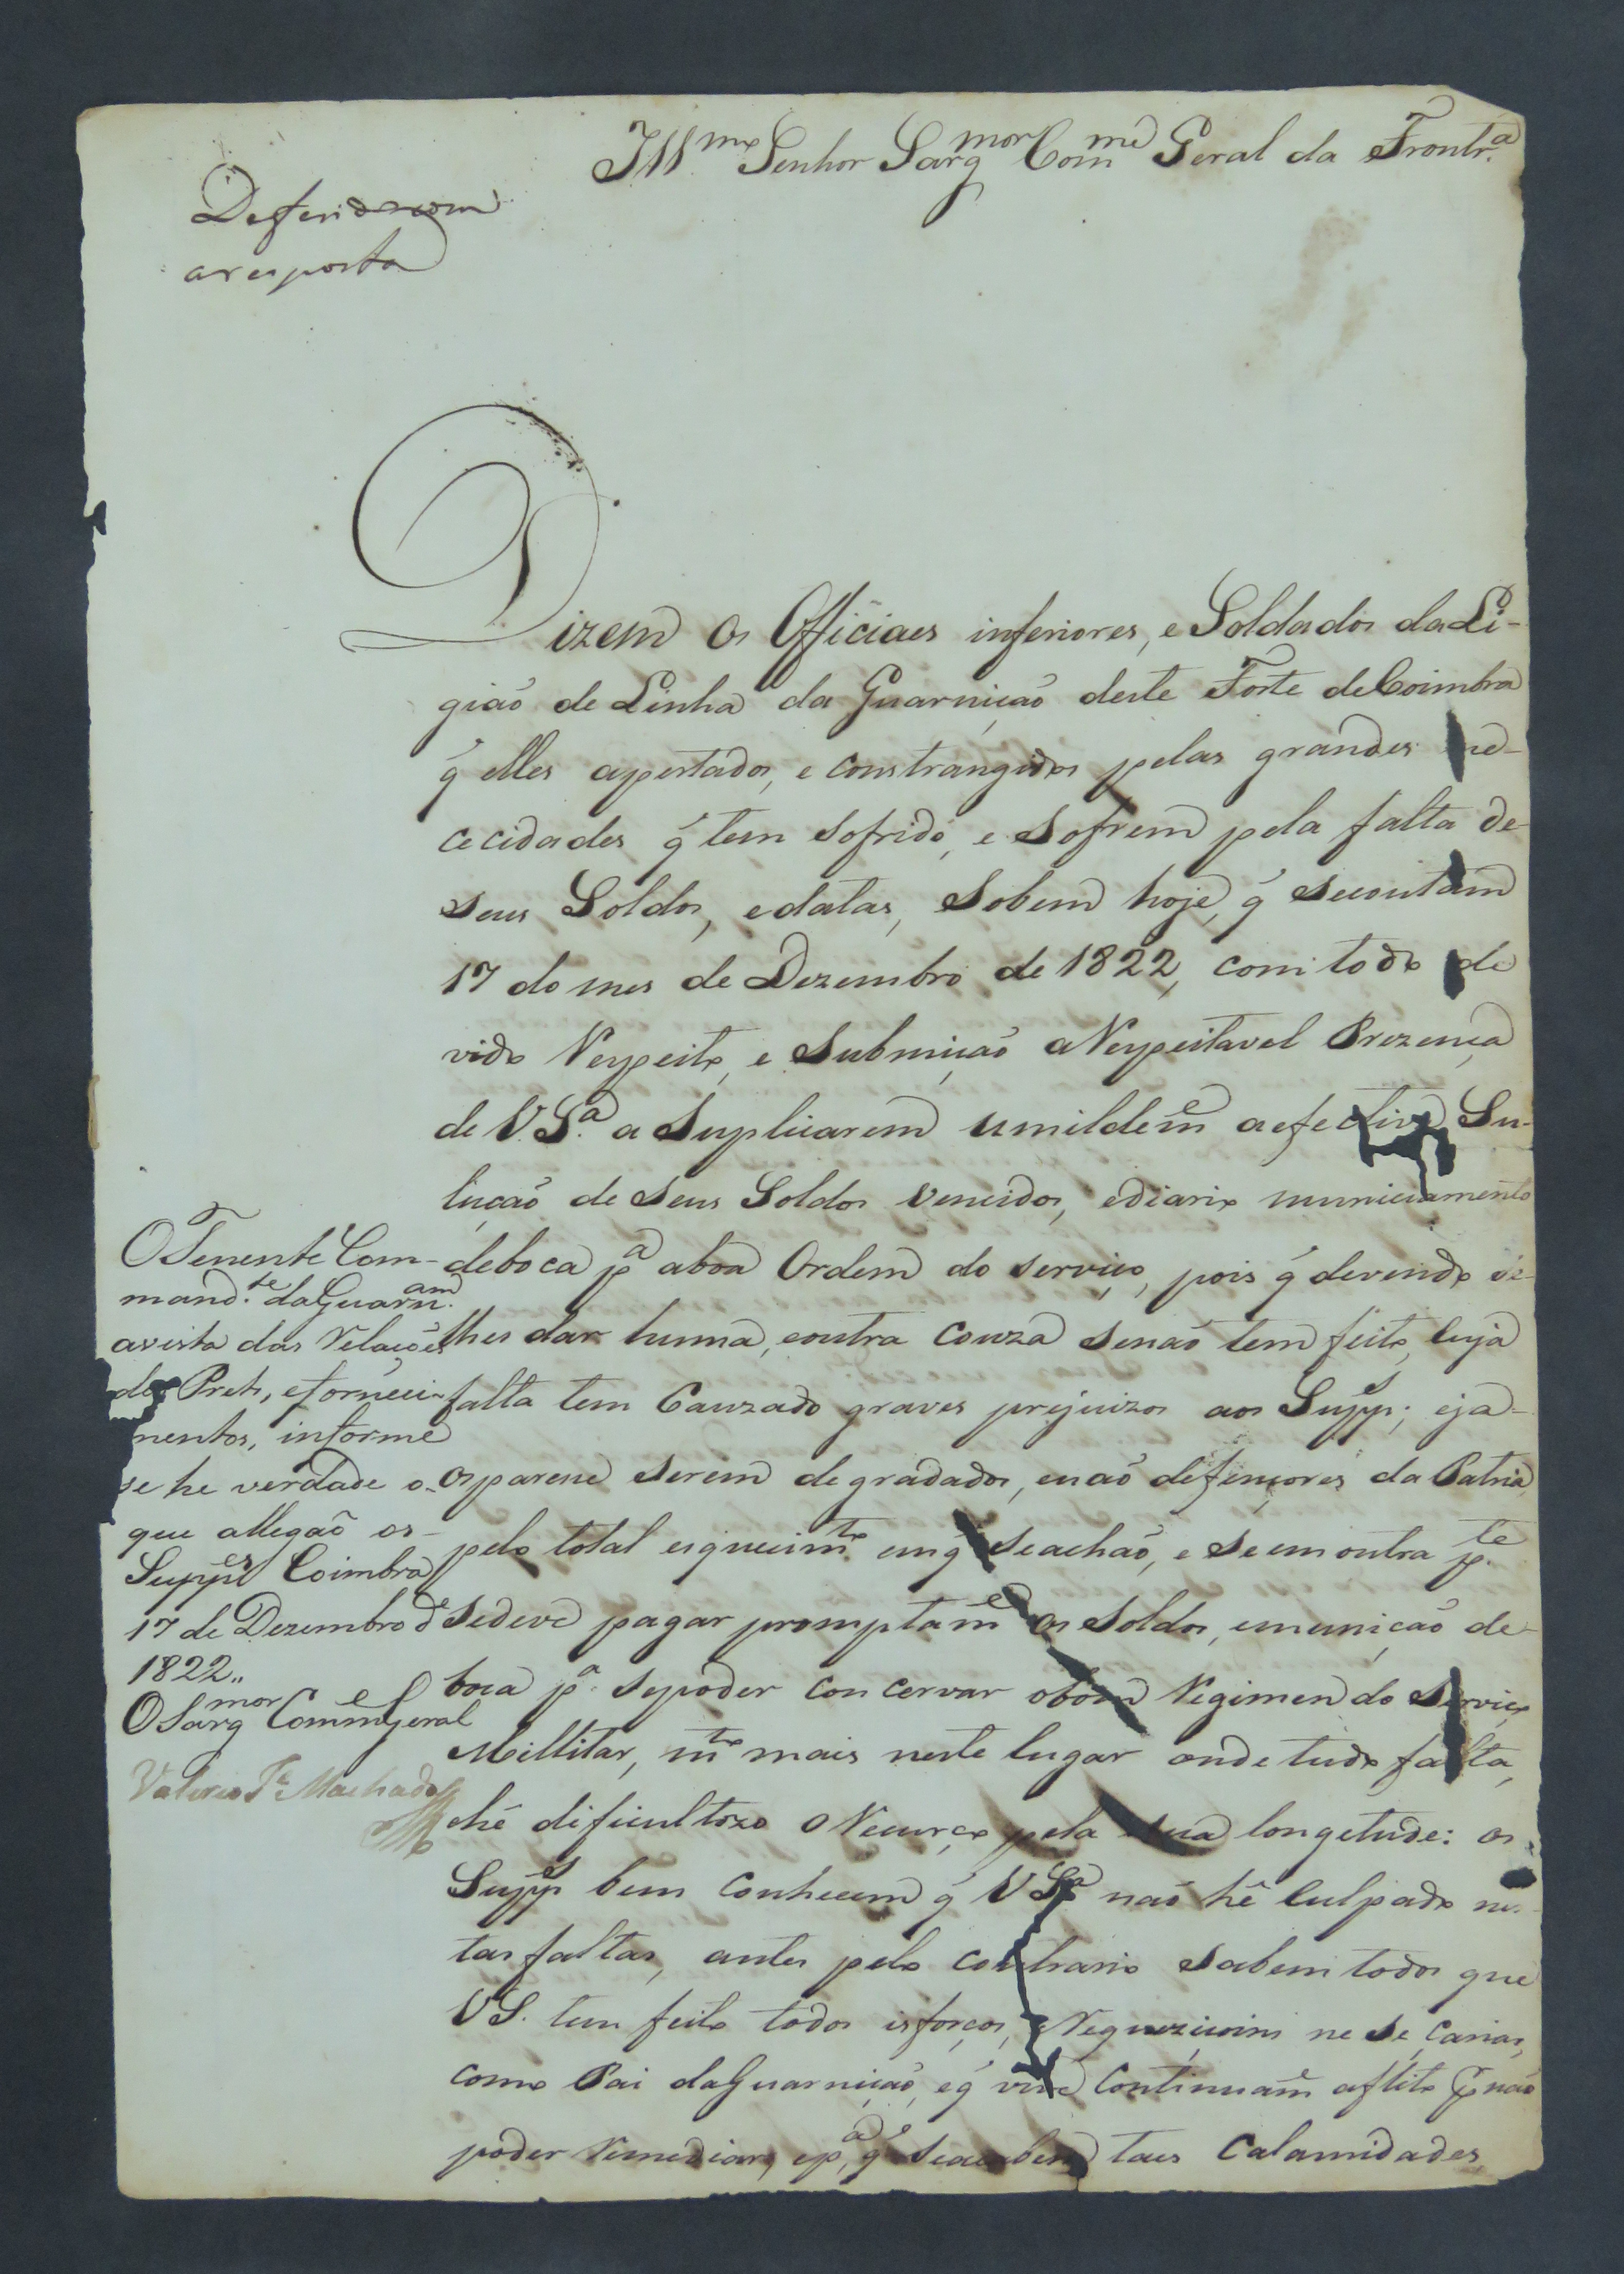 Ill.mo Senhor Sarg.mor Com.me Geral da Front.ra
Deferido com
a resposta
Dizem os Officiaes inferiores, e Soldados da Li-
gião de Linha da Guarnição deste Forte de Coimbra
q̃ elles apertados, e constrangidos pelas grandes ne-
cecidades q̃ tem sofrido, e sofrem pela falta de
seus Soldos, e datas, sobem hoje, q̃ se contam
17 do mes de Dezembro de 1822, com todo de
vido Respeito, e Submição a Respeitavel Prezença
de V. S.a a Suplicarem umildem.e a efectiva So-
lução de seus Soldos vencidos, e diario municiamento
de boca p.a a boa Ordem do serviço, pois q̃ devendo se
lhes dar huma, e outra couza se não tem feito, cuja
falta tem Cauzado graves prejuizos aos Supp.es; e ja
os parece serem degradados, e não defençores da Patria,
pelo total esquecim.to em q̃ se achão, e se em outra p.te
se deve pagar promptam.e os Soldos, e munição de
boca p.a se poder concervar o bom Regimen do Serviço
Millitar, m.to mais neste lugar onde tudo falta,
e hé dificultozo o Recurço pela sua longetude: os
Supp.es bem conhecem q̃ V S.a não hé culpado nes-
tas faltas, antes pelo contrario sabem todos que
V S. tem feito todos esforços,
como Pai da Guarnição, e q̃ vive Continuam.e aflito p.r não
poder remediar, e p.a q̃ se acabem taes Calamidades
O Tenente Com-
mand.te da Guarn.am
a vista das Relações
dos Prets, e forneci-
mentos, informe
se he verdade o
que allegão os
Supp.es Coimbra
17 de Dezembro d.e
1822..
O Sarg.mor Comm.e Geral
Valerio Je Machado